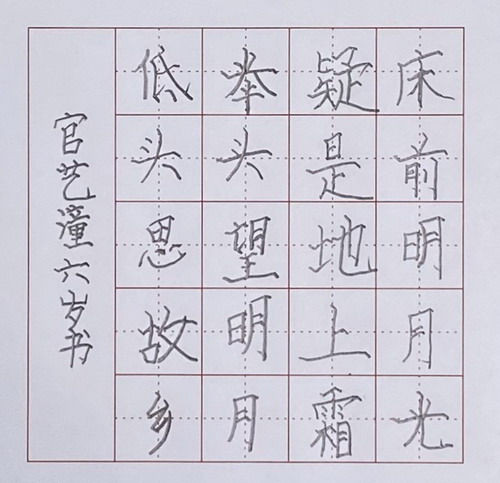 床前明月光
疑是地上霜
举头望明月
低头思故乡
官艺潼六岁书